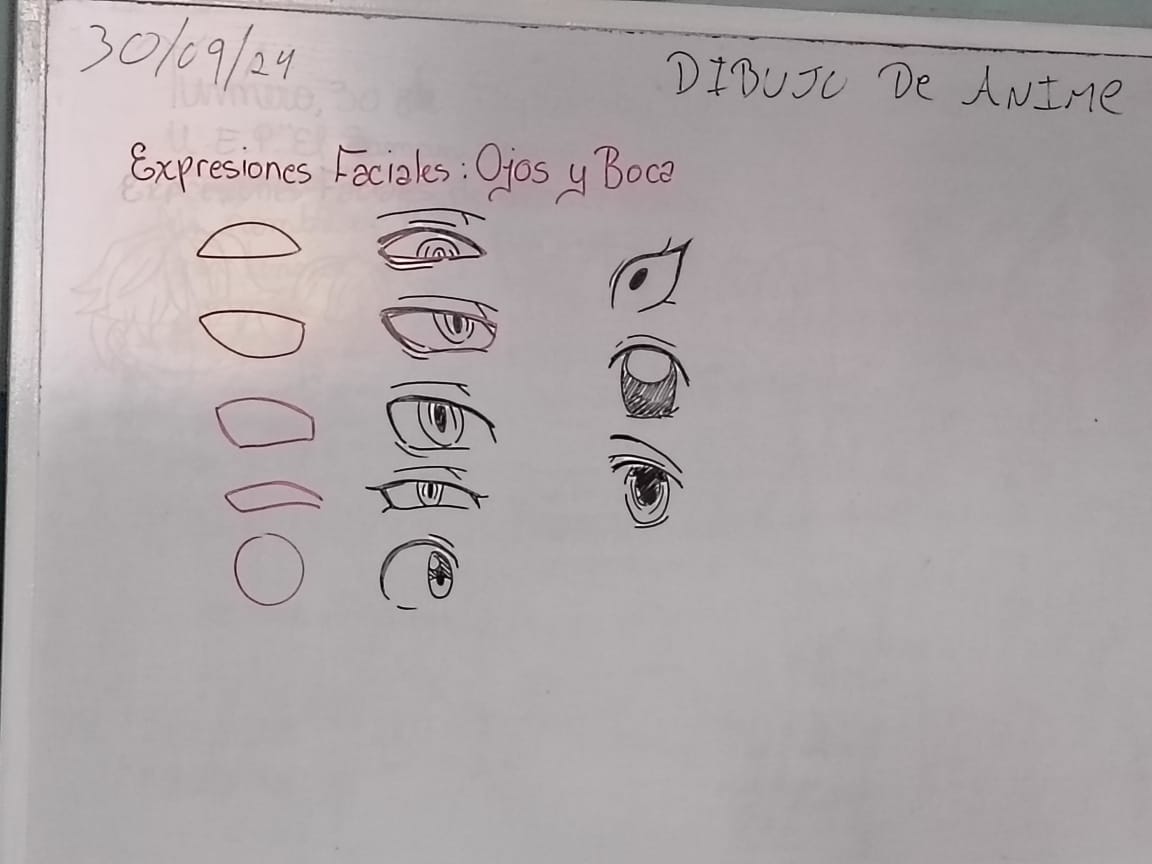 30/09/24
DIBUJO De ANIMe
Expresiones Faciales: Ojos y Boca